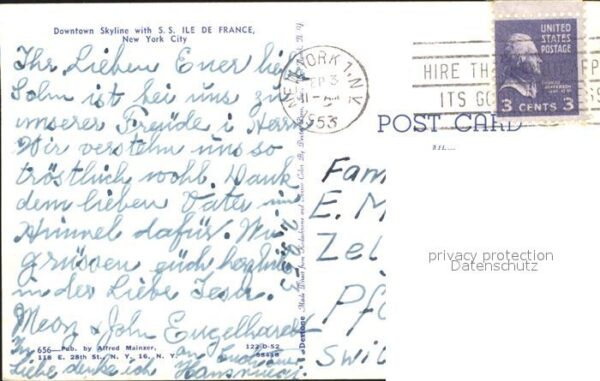 Downtown Skyline with S. S. ILE DE FRANCE,
New York City
Ihr Lieben Euer
Sohn ist bei uns zu
unserer Freude i Herrn
Wir verstehn uns so
tröstlich wohl. Dank
dem lieben Vater im
Himmel dafür. Wir
grüssen euch herzlich
in der Liebe Jesu.
Meon & John Engelhardt
In
Liebe denke ich an
656—Pub. by Alfred Mainzer,
118 E. 28th St., N. Y., 16, N. Y.
122-D-52
Dextone
NEW YORK, N.Y.
SEP 3
1953
HIRE TH
ITS GO
UNITED
STATES
POSTAGE
3 CENTS 3
POST CARD
Fam
E. M
Zel
Pf
Swi
privacy protection
Datenschutz